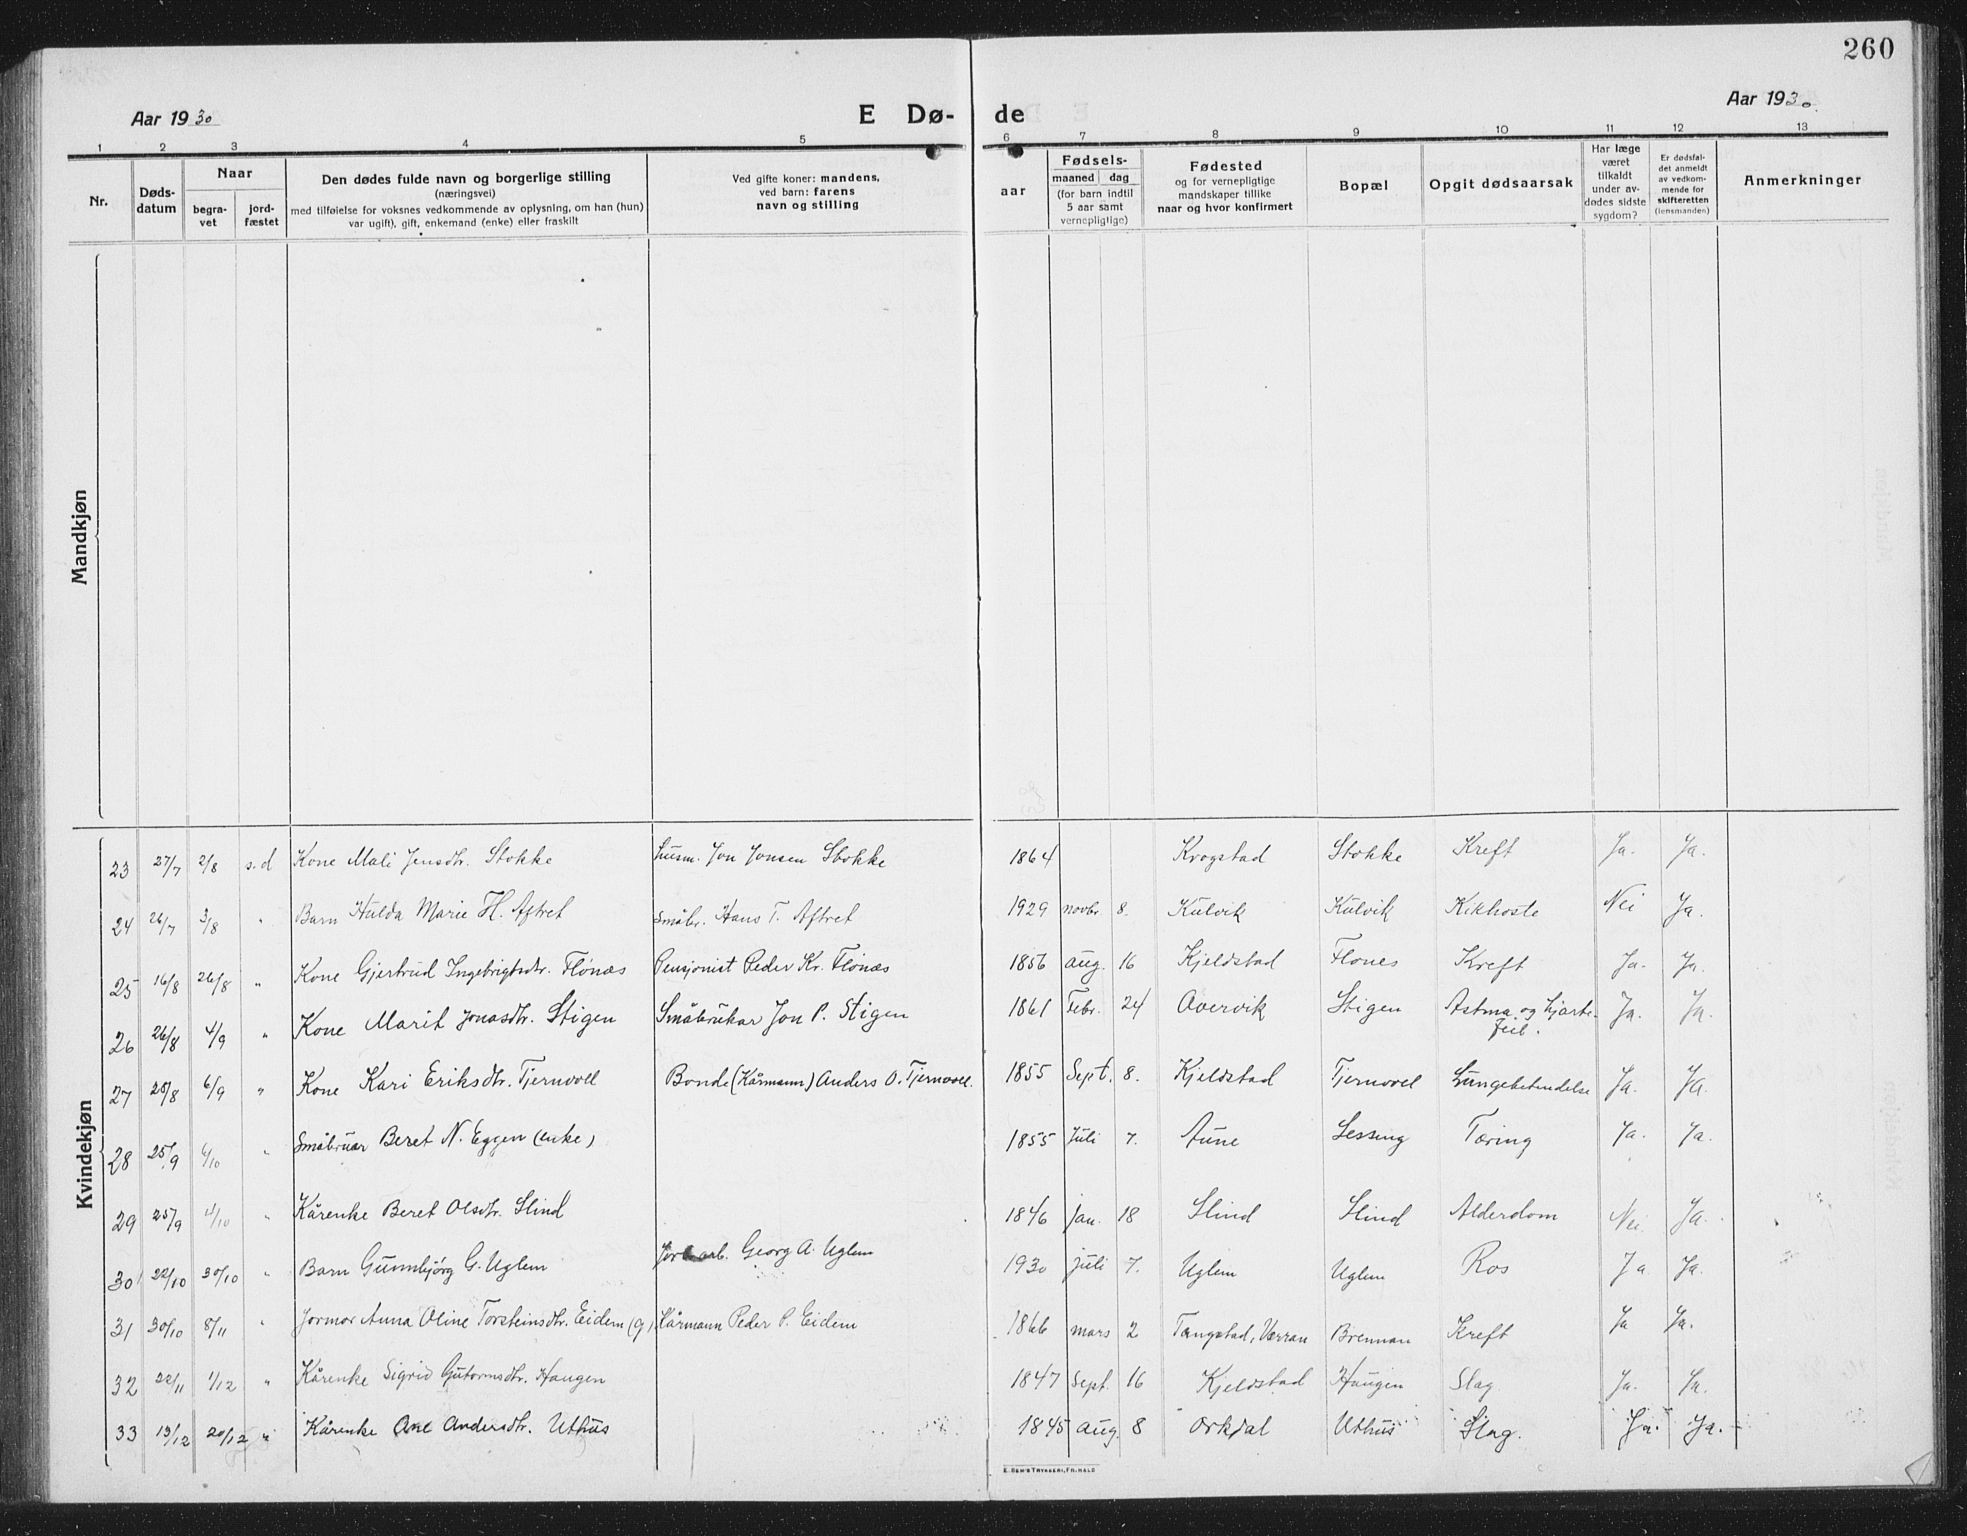 260
Aar 1930
E Dø-
de
Aar 1930.
1 2 3 4 5 6 7 8 9 10 11 12 13
Nr.
Døds-
datum
Naar
begra-
vet
jord-
fæstet
Den dødes fulde navn og borgerlige stilling
(næringsvei)
med tilføielse for voksnes vedkommende av oplysning, om han (hun)
var ugift), gift, enkemand (enke) eller fraskilt
Ved gifte koner: mandens,
ved barn: farens
navn og stilling
aar
Fødsels-
maaned dag
(for barn indtil
5 aar samt
vernepligtige)
Fødested
og for vernepligtige
mandskaper tillike
naar og hvor konfirmert
Bopæl
Opgit dødsaarsak
Har læge
været
tilkaldt
under av-
dødes sidste
sygdom?
Er dødsfal-
det anmeldt
av vedkom-
mende for
skifteretten
(lensmanden)
Anmerkninger
Mandkjøn
Kvindekjøn
23 27/7 2/8 s.d Kone Mali Jensdtr. Stokke Husm. Jon Jonsen Stokke 1864 Krogstad Stokke Kreft Ja. Ja.
24 26/7 3/8 " Barn Hulda Marie H. Aftret Småbr. Hans T. Aftret 1929 novbr. 8. Kulvik Kulvik Kikhoste Nei Ja.
25 16/8 26/8 " Kone Gjertrud Ingebrigtsdtr. Flönæs Pensjonist Peder Kr. Flönæs 1856 aug. 16 Kjeldstad Flones Kreft Ja. Ja.
26 26/8 4/9 " Kone Marit Jonasdtr. Stigen Småbrukar Jon P. Stigen 1861 Febr. 24 Overvik Stigen Astma og hjarte-
feil. Ja. Ja.
27 28/8 6/9 " Kone Kari Eriksdtr. Tjernvoll Bonde (Kårmann) Anders O. Tjernvoll. 1855 Sept. 8. Kjeldstad Tjernvoll Lungebetendelse Ja. Ja.
28 25/9 4/10 " Småbruar Beret N. Eggen (enke) 1855 Juli 7. Aune Sessing Tæring Ja. Ja.
29 25/9 4/10 " Kårenke Beret Olsdtr. Slind 1846 jan. 18 Slind Slind Alderdom Nei. Ja.
30 22/10 30/10 " Barn Gunnbjörg G. Uglem arb. Georg A. Uglem 1930 juli 7. Uglem Uglem Ros Ja Ja.
31 30/10 8/11 " Jormor Anna Oline Torsteinsdtr. Eidem (g) Kårmann Peder P. Eidem 1866 mars 2 Tangstad, Verran Brennan Kreft Ja Ja.
32 22/11 1/12 " Kårenke Sigrid Gutormsdtr. Haugen 1847 Sept. 16 Kjeldstad Haugen Slag. Ja. Ja.
33 13/12 20/12 " Kårenke Ane Andersdtr. Uthus 1845 aug. 8 Orkdal Uthus Slag. Ja. Ja.
E. SEM'S TRYKKERI, FR.HALD